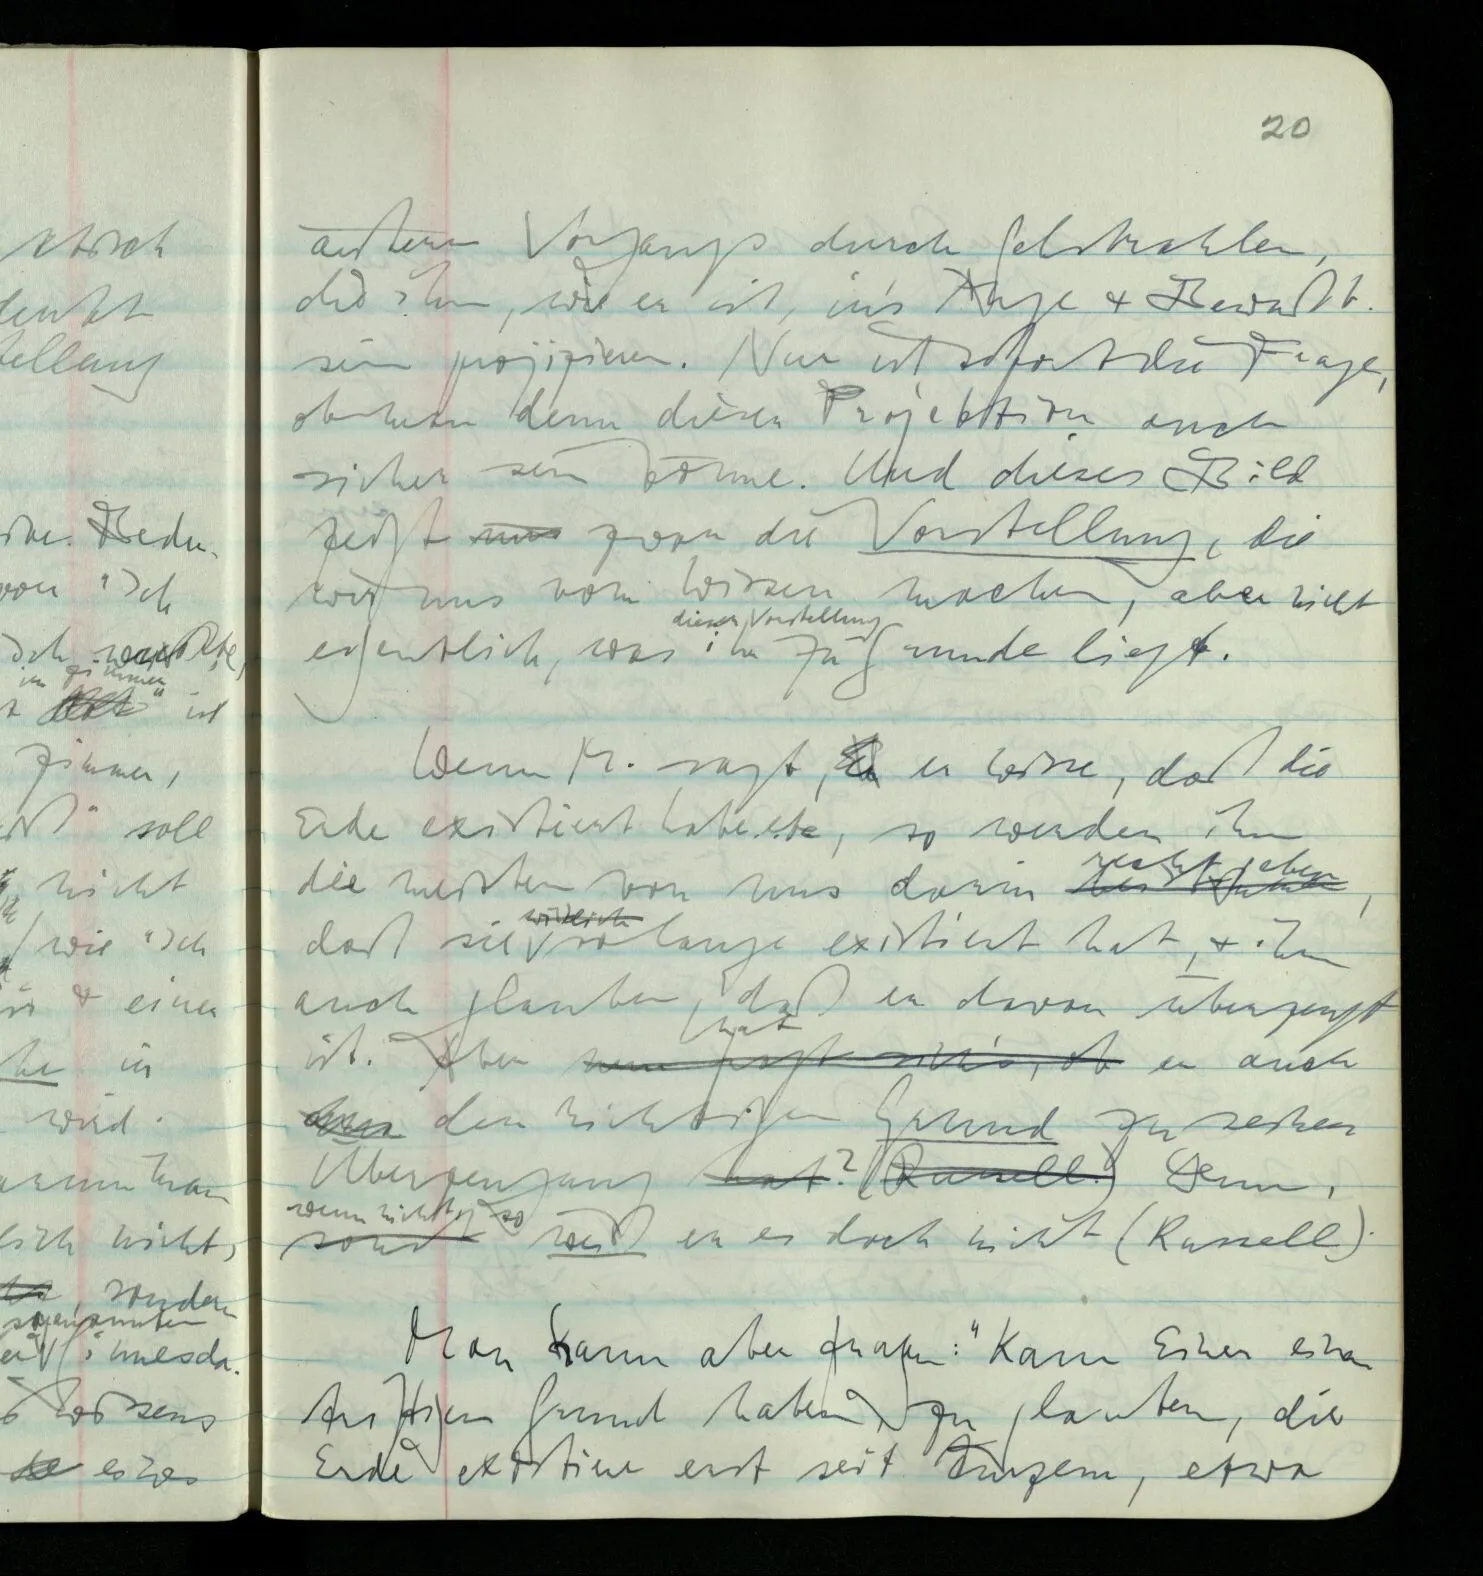 ktisch
denkt
tellung
Bedeu-
von "Ich
Ich wüßte,
im Zimmer
" ist
Zimmer,
soll
nicht
wie "Ich
& einer
he in
wird.
warum man
lich nicht,
sondern
sogenannten
Wissens
eines
20
äußeren Vorgangs durch Sehstrahlen,
die ihn, wie er ist, in's Auge & Bewußt-
sein projizieren. Nur ist sofort die Frage,
ob man denn dieser Projektion auch
sicher sein könne. Und dieses Bild
zeigt uns zwar die Vorstellung, die
wir uns vom Wissen machen, aber nicht
dieser Vorstellung
eigentlich, was ihr zu Grunde liegt.
Wenn M. sagt, er wisse, daß die
Erde existiert habe etc, so werden ihm
recht geben
die meisten von uns darin,
wirklich
daß sie solange existiert hat, & ihm
auch glauben, daß er davon überzeugt
hat
ist. Aber er auch
den richtigen Grund zu seiner
Überzeugung hat? (Russell.) Denn,
wenn nicht, so
sonst weiß er es doch nicht (Russell).
Man kann aber fragen: "Kann Einer einen
triftigen Grund haben zu glauben, die
Erde existiere erst seit kurzem, etwa